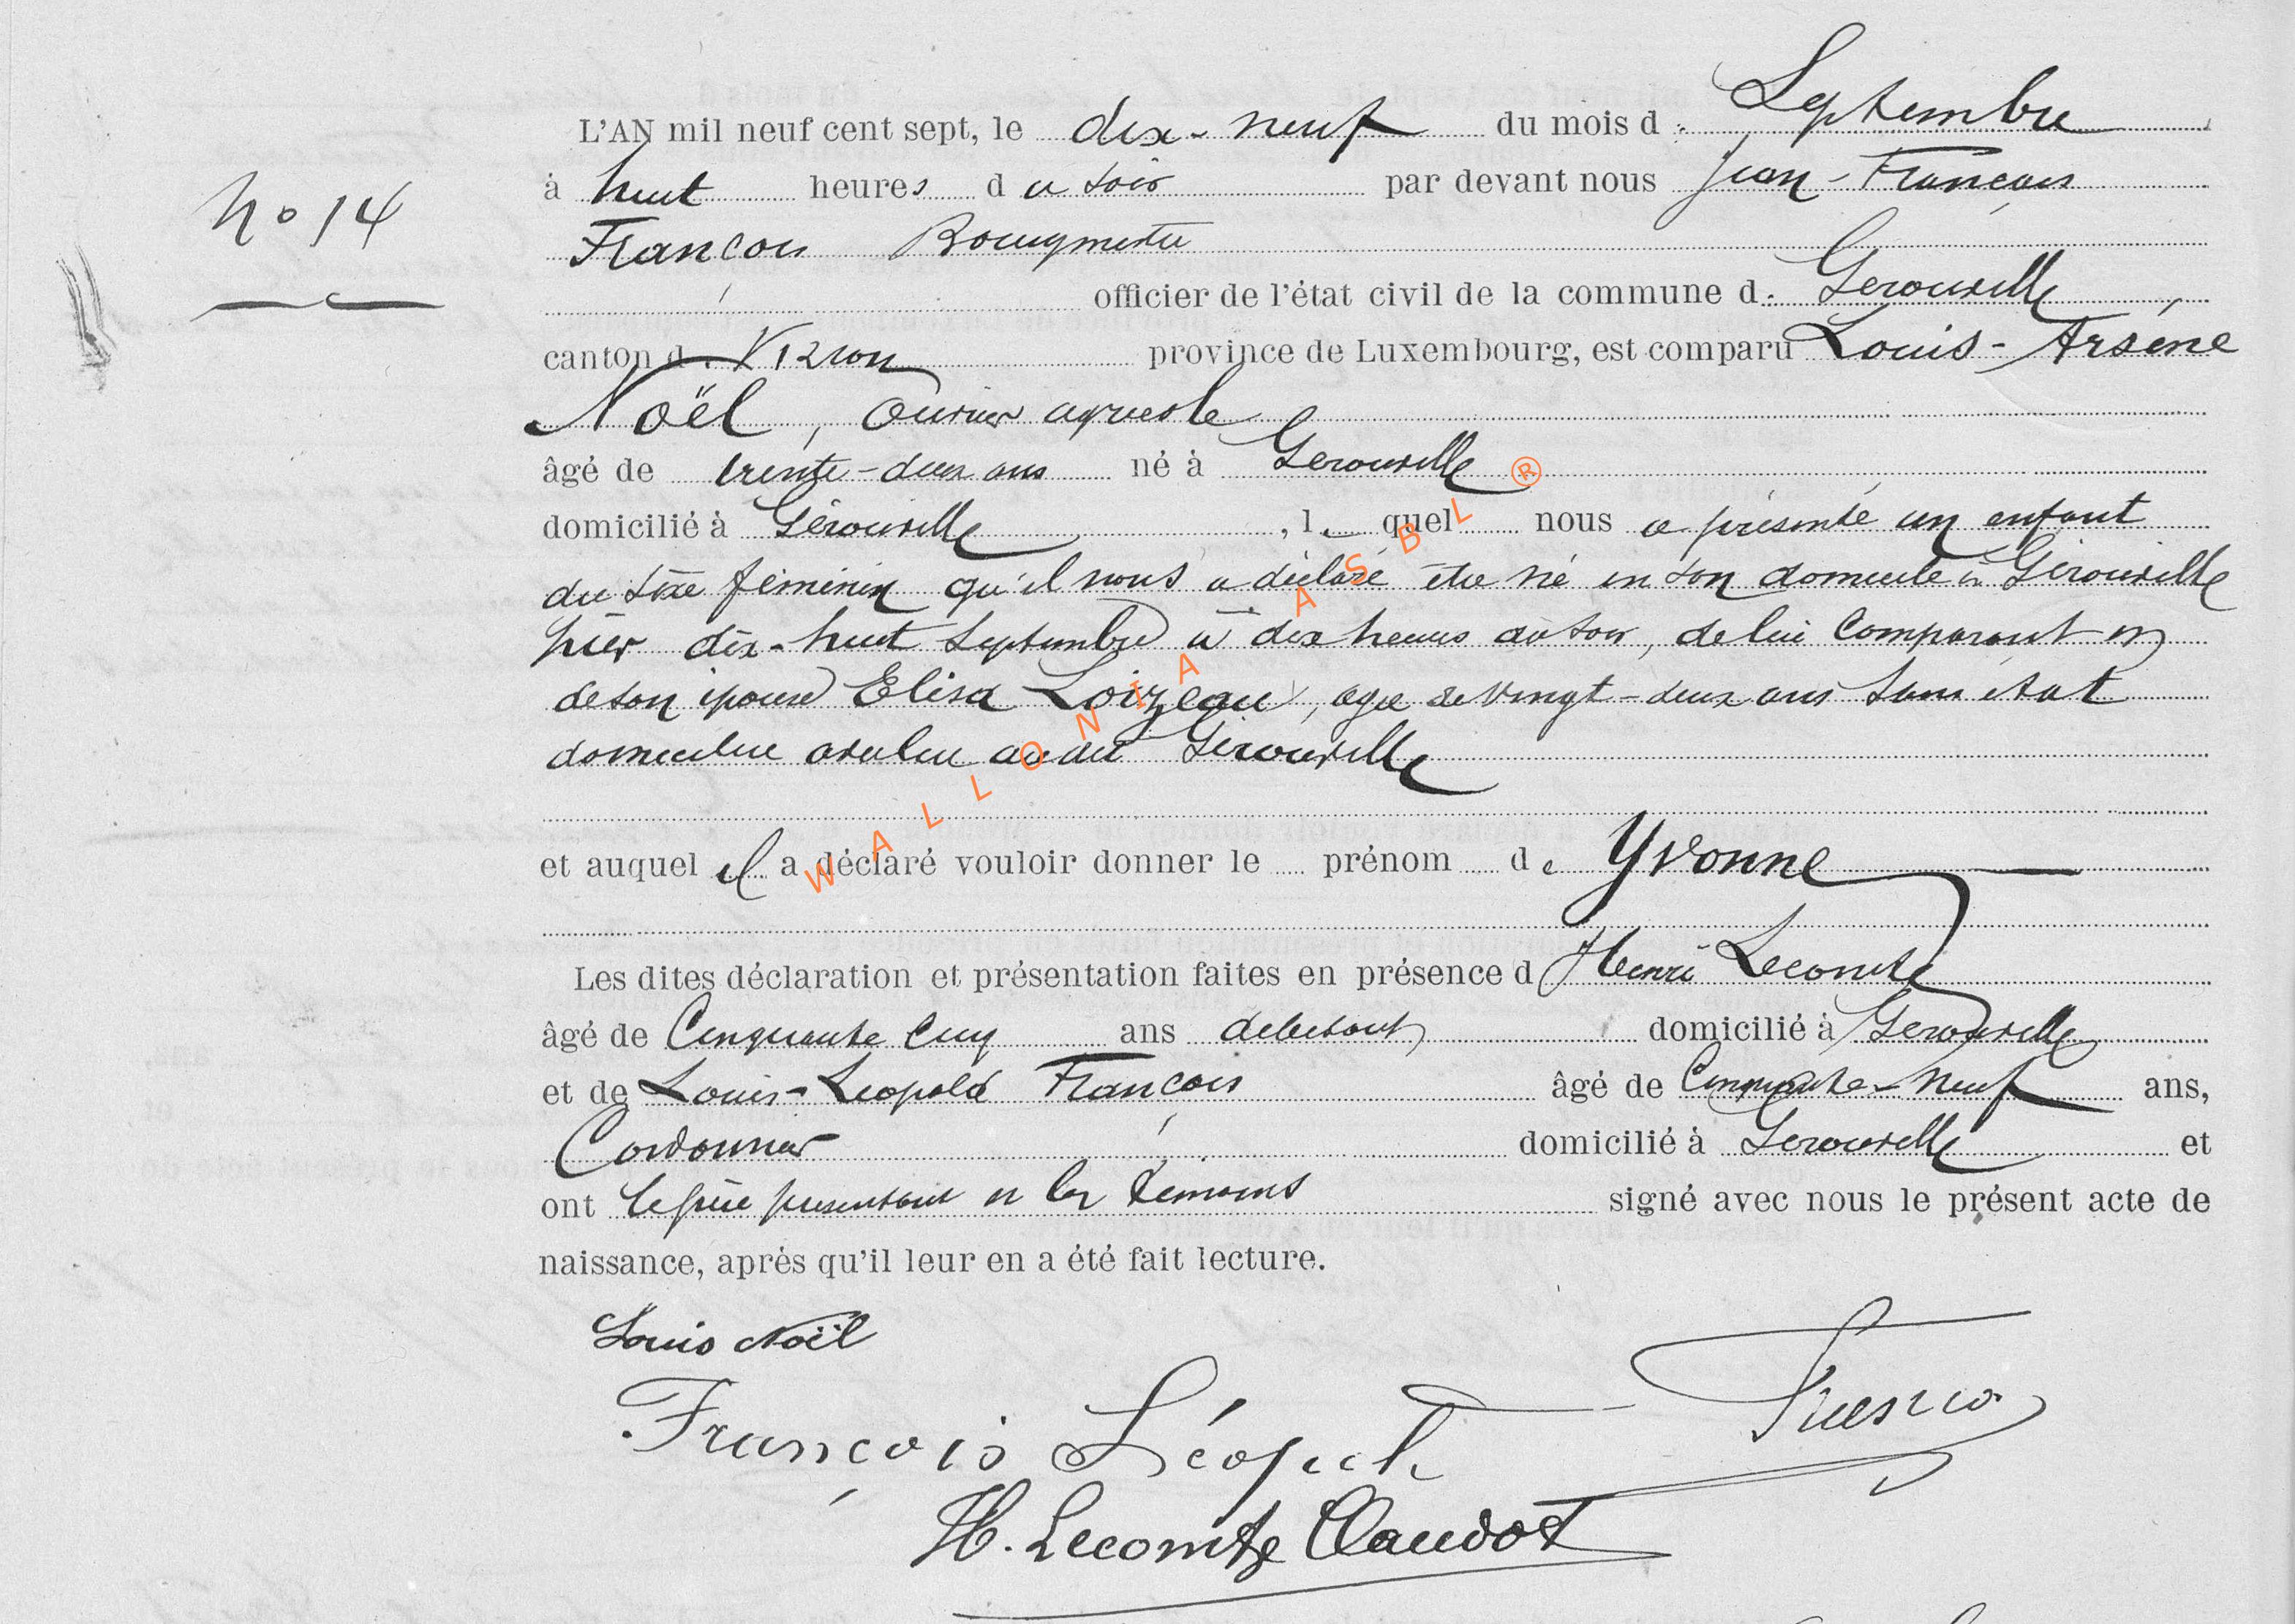 L'AN mil neuf cent sept, le dix-neuf du mois de Septembre
à huit heures du soir par devant nous Jean-François
François Bourgmestre
officier de l'état civil de la commune de Gérouville
canton de Virton province de Luxembourg, est comparu Louis-Arsène
No 14
Noël, ouvrier agricole
âgé de trente-deux ans né à Gerouville
domicilié à Gérouville, lequel nous a présenté un enfant
du sexe féminin qu'il nous a déclaré être né en son domicile à Gérouville
hier dix-huit Septembre à dix heures du soir, de lui Comparant et
de son épouse Elisa Loizeau, agée de vingt-deux ans sans état
domiciliée au dit Gérouville
et auquel il a déclaré vouloir donner le prénom de Yvonne
Les dites déclaration et présentation faites en présence d Henri Lecomte
âgé de Cinquante cinq ans débitant domicilié à Gerouville
et de Louis-Léopold François âgé de Cinquante-neuf ans,
Cordonnier domicilié à Gerouville et
ont le père présentant et les témoins signé avec nous le présent acte de
naissance, après qu'il leur en a été fait lecture.
Louis Noël
François Léopold
H. Lecomte Claudot
WALLONIA ASBL ®